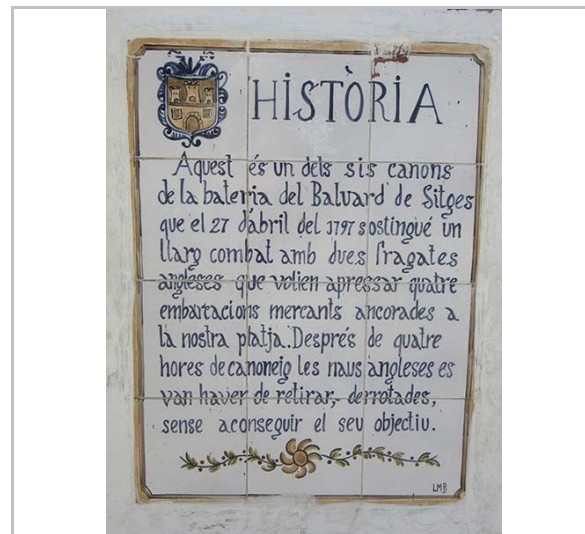 HISTÒRIA
Aquest és un dels sis canons
de la bateria del Baluard de Sitges
que el 27 d'abril del 1797 sostingué un
llarg combat amb dues fragates
angleses que volien apressar quatre
embarcacions mercants ancorades a
la nostra platja. Després de quatre
hores de canoneig les naus angleses es
van haver de retirar, derrotades,
sense aconseguir el seu objectiu.
LMB